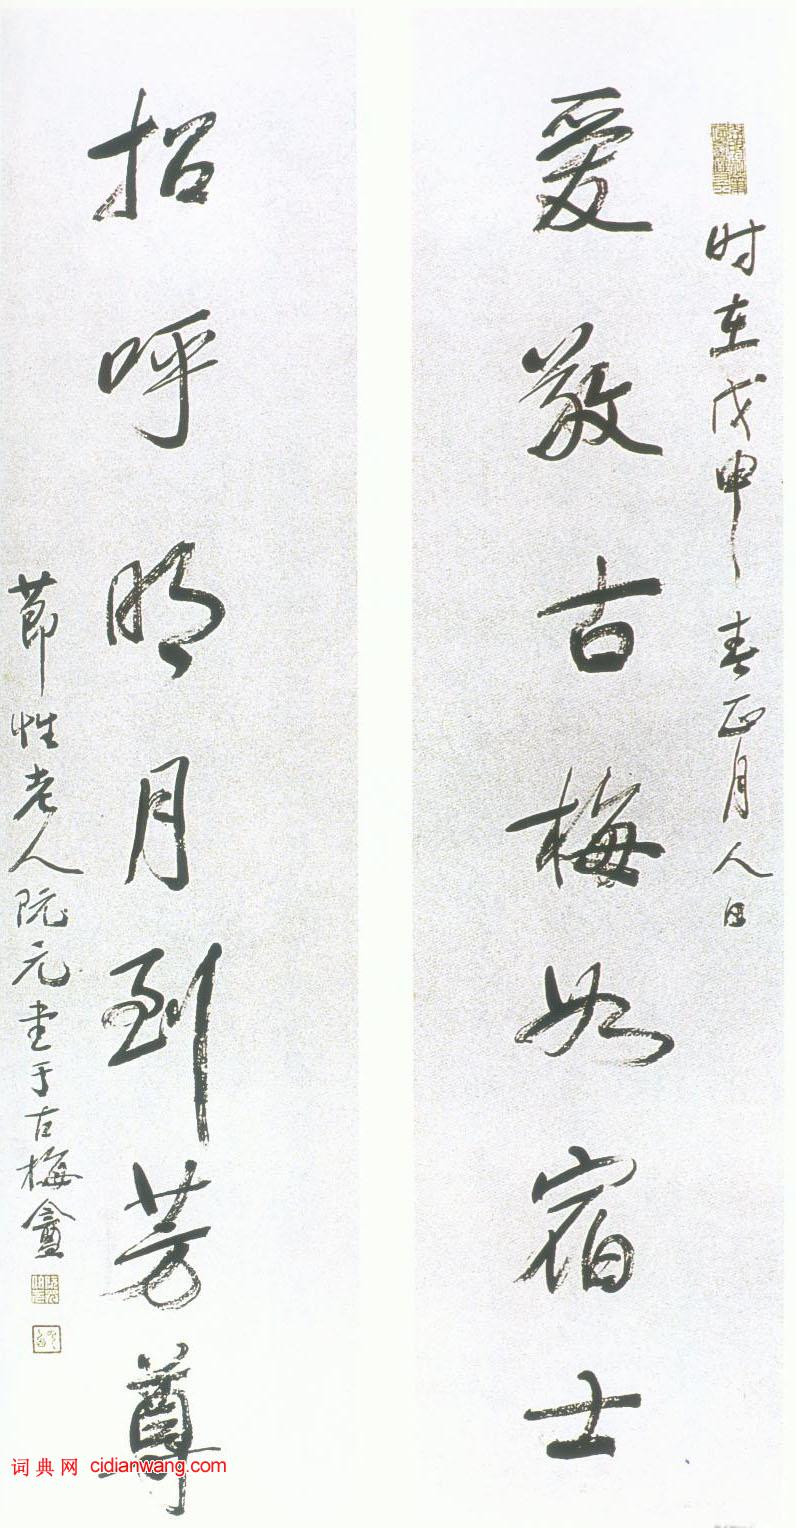 时在戊申春正月人日
爱敬古梅如宿士
招呼明月到芳尊
节性老人阮元书于古梅盦
词典网 cidianwang.com